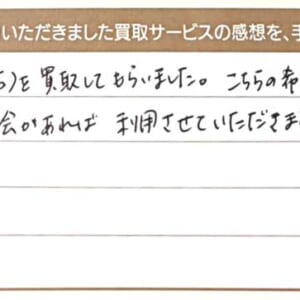 いただきました買取サービスの感想を、手
)を買取してもらいました。こちらの希
会があれば 利用させていただきま